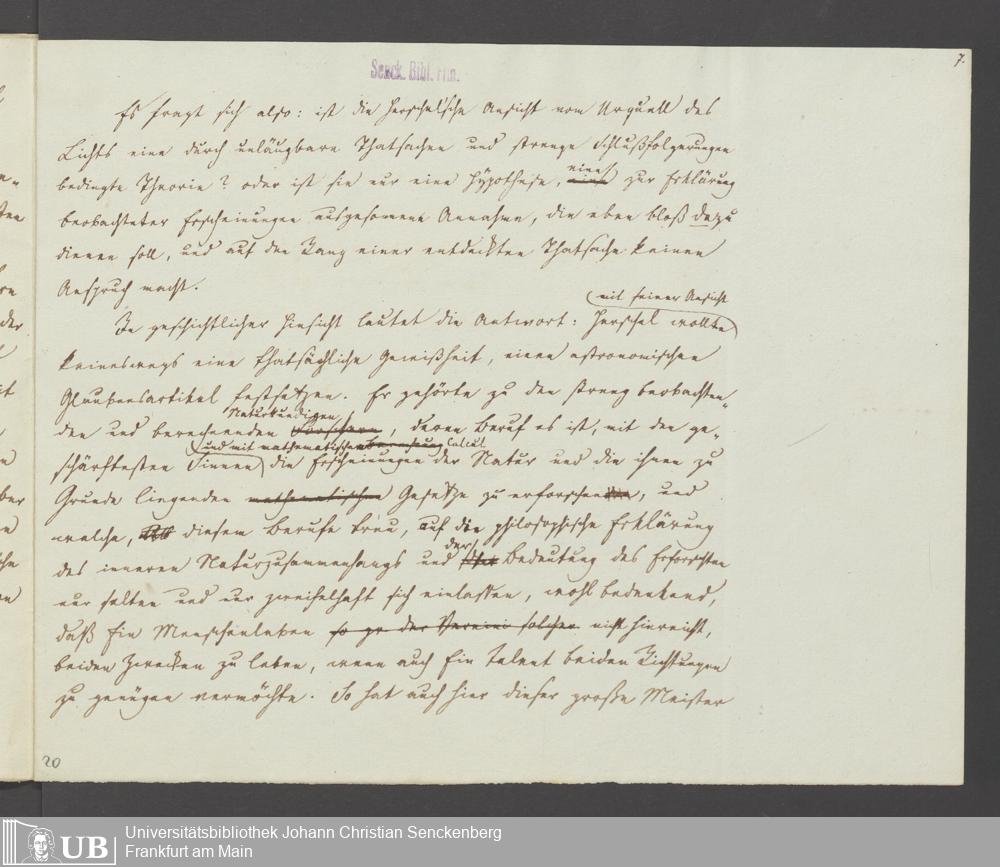 7.
Senck. Bibl. Ffm.
Es fragt sich also: ist die Herschelsche Ansicht vom Urquell des
Lichts eine durch unläugbare Thatsachen und strenge Schlußfolgerungen
bedingte Theorie? oder ist sie nur eine Hypothese, eine zur Erklärung
beobachteter Erscheinungen aufgenommene Annahme, die eben bloß dazu
dienen soll, und auf den Rang einer entdeckten Thatsache keinen
Anspruch macht.
(mit seiner Ansicht
In geschichtlicher Hinsicht lautet die Antwort: Herschel wollte)
keineswegs eine thatsächliche Gewißheit, einen astronomischen
Glaubensartikel festsetzen. Er gehörte zu den streng beobachten-
Naturkundigen
den und berechnenden Forschern, deren Beruf es ist, mit den ge-
und mit mathematischem Calcul
schärftesten Sinnen die Erscheinungen der Natur und die ihnen zu
Grunde liegenden mathematischen Gesetze zu erforschen, und
welche, diesem Berufe treu, auf die philosophische Erklärung
der
des inneren Naturzusammenhangs und Bedeutung des Erforschten
nur selten und nur zweifelhaft sich einlassen, wohl bedenkend,
daß Ein Menschenleben so zu der Verein solcher nicht hinreicht,
beiden Zwecken zu leben, wenn auch Ein Talent beiden Richtungen
zu genügen vermöchte. So hat auch hier dieser große Meister
20
UB
Universitätsbibliothek Johann Christian Senckenberg
Frankfurt am Main